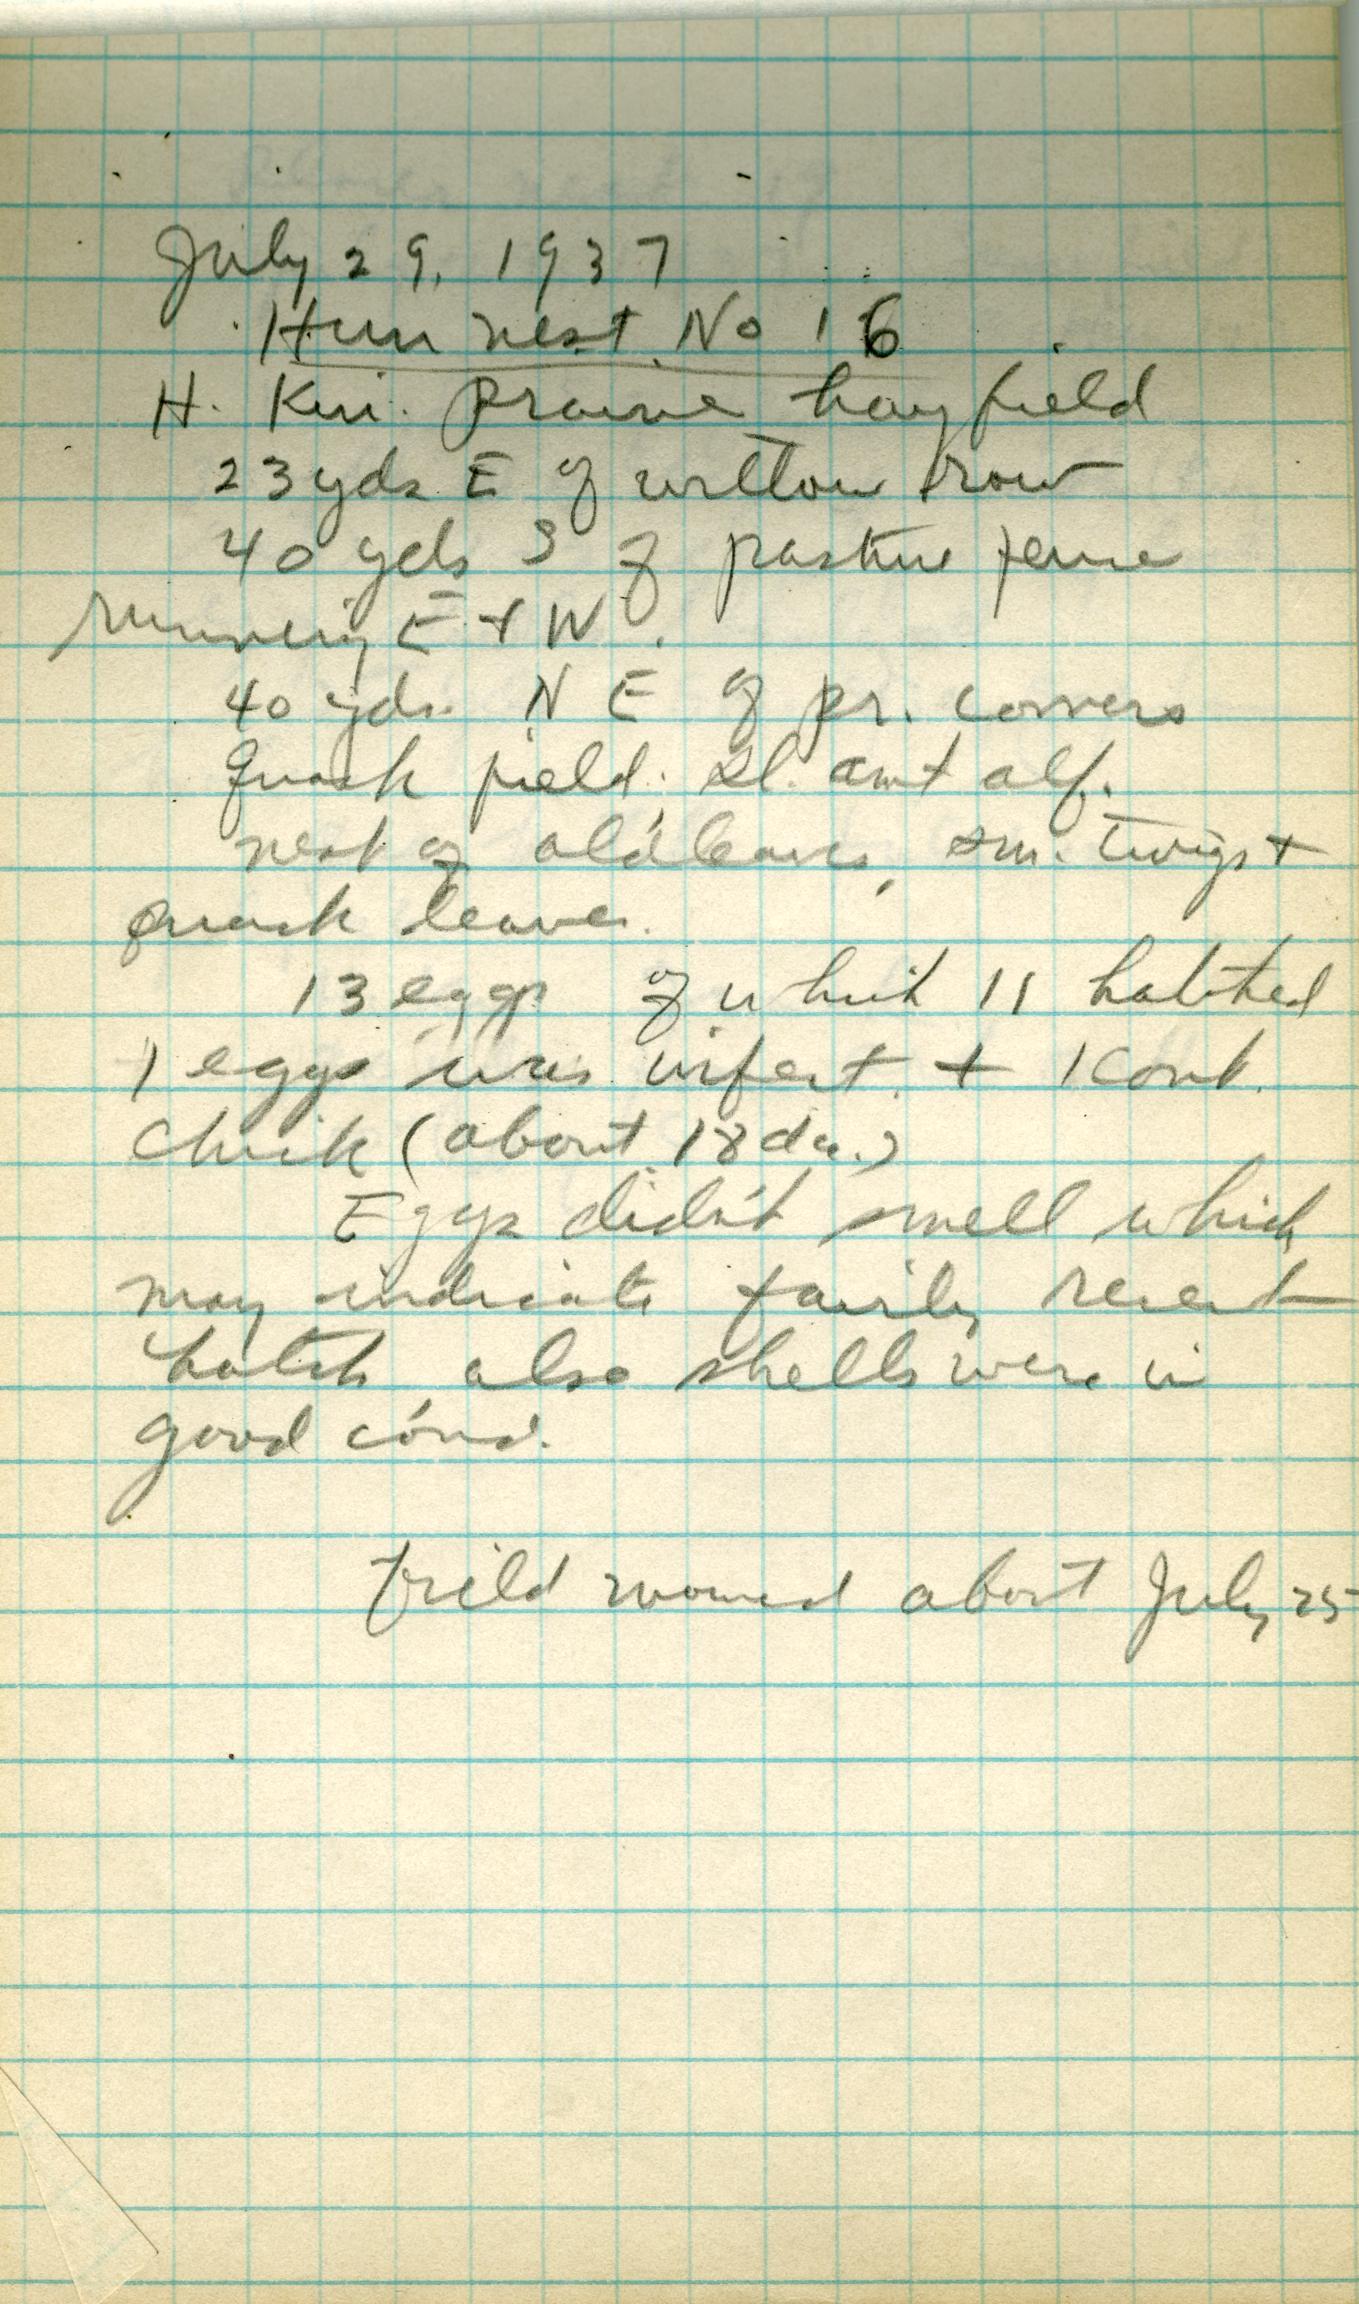 July 29, 1937
Hun nest No 16
H. Kin. Prairie hayfield
23 yds E of willow row
40 yds S of pasture fence
running E + W.
40 yds. N E of pr. corners
Quack field. Sl. amt alf.
nest of old leaves, sm. twigs +
quack leaves.
13 eggs of which 11 hatched
1 eggs was infert. + 1 cont.
chick (about 18 da.)
Eggs didn't smell which
may indicate fairly recent
hatch also shells were in
good cond.
Field mowed about July 25